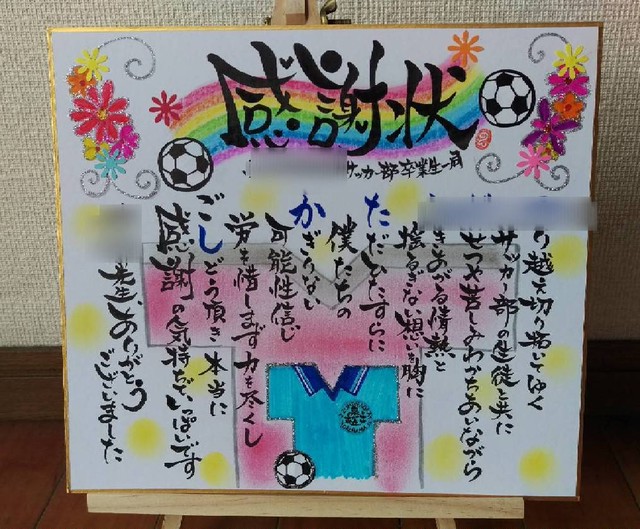 感謝状
サッカー部卒業生一同
り越え切り拓いてゆく
サッカー部の生徒と共に
せつや苦しみわかちあいながら
きあがる情熱と
揺るぎない想いを胸に
ただひたすらに
僕たちの
かぎりない
可能性信じ
労を惜しまず力を尽くし
ごしどう頂き本当に
感謝の気持ちでいっぱいです
先生、ありがとう
ございました